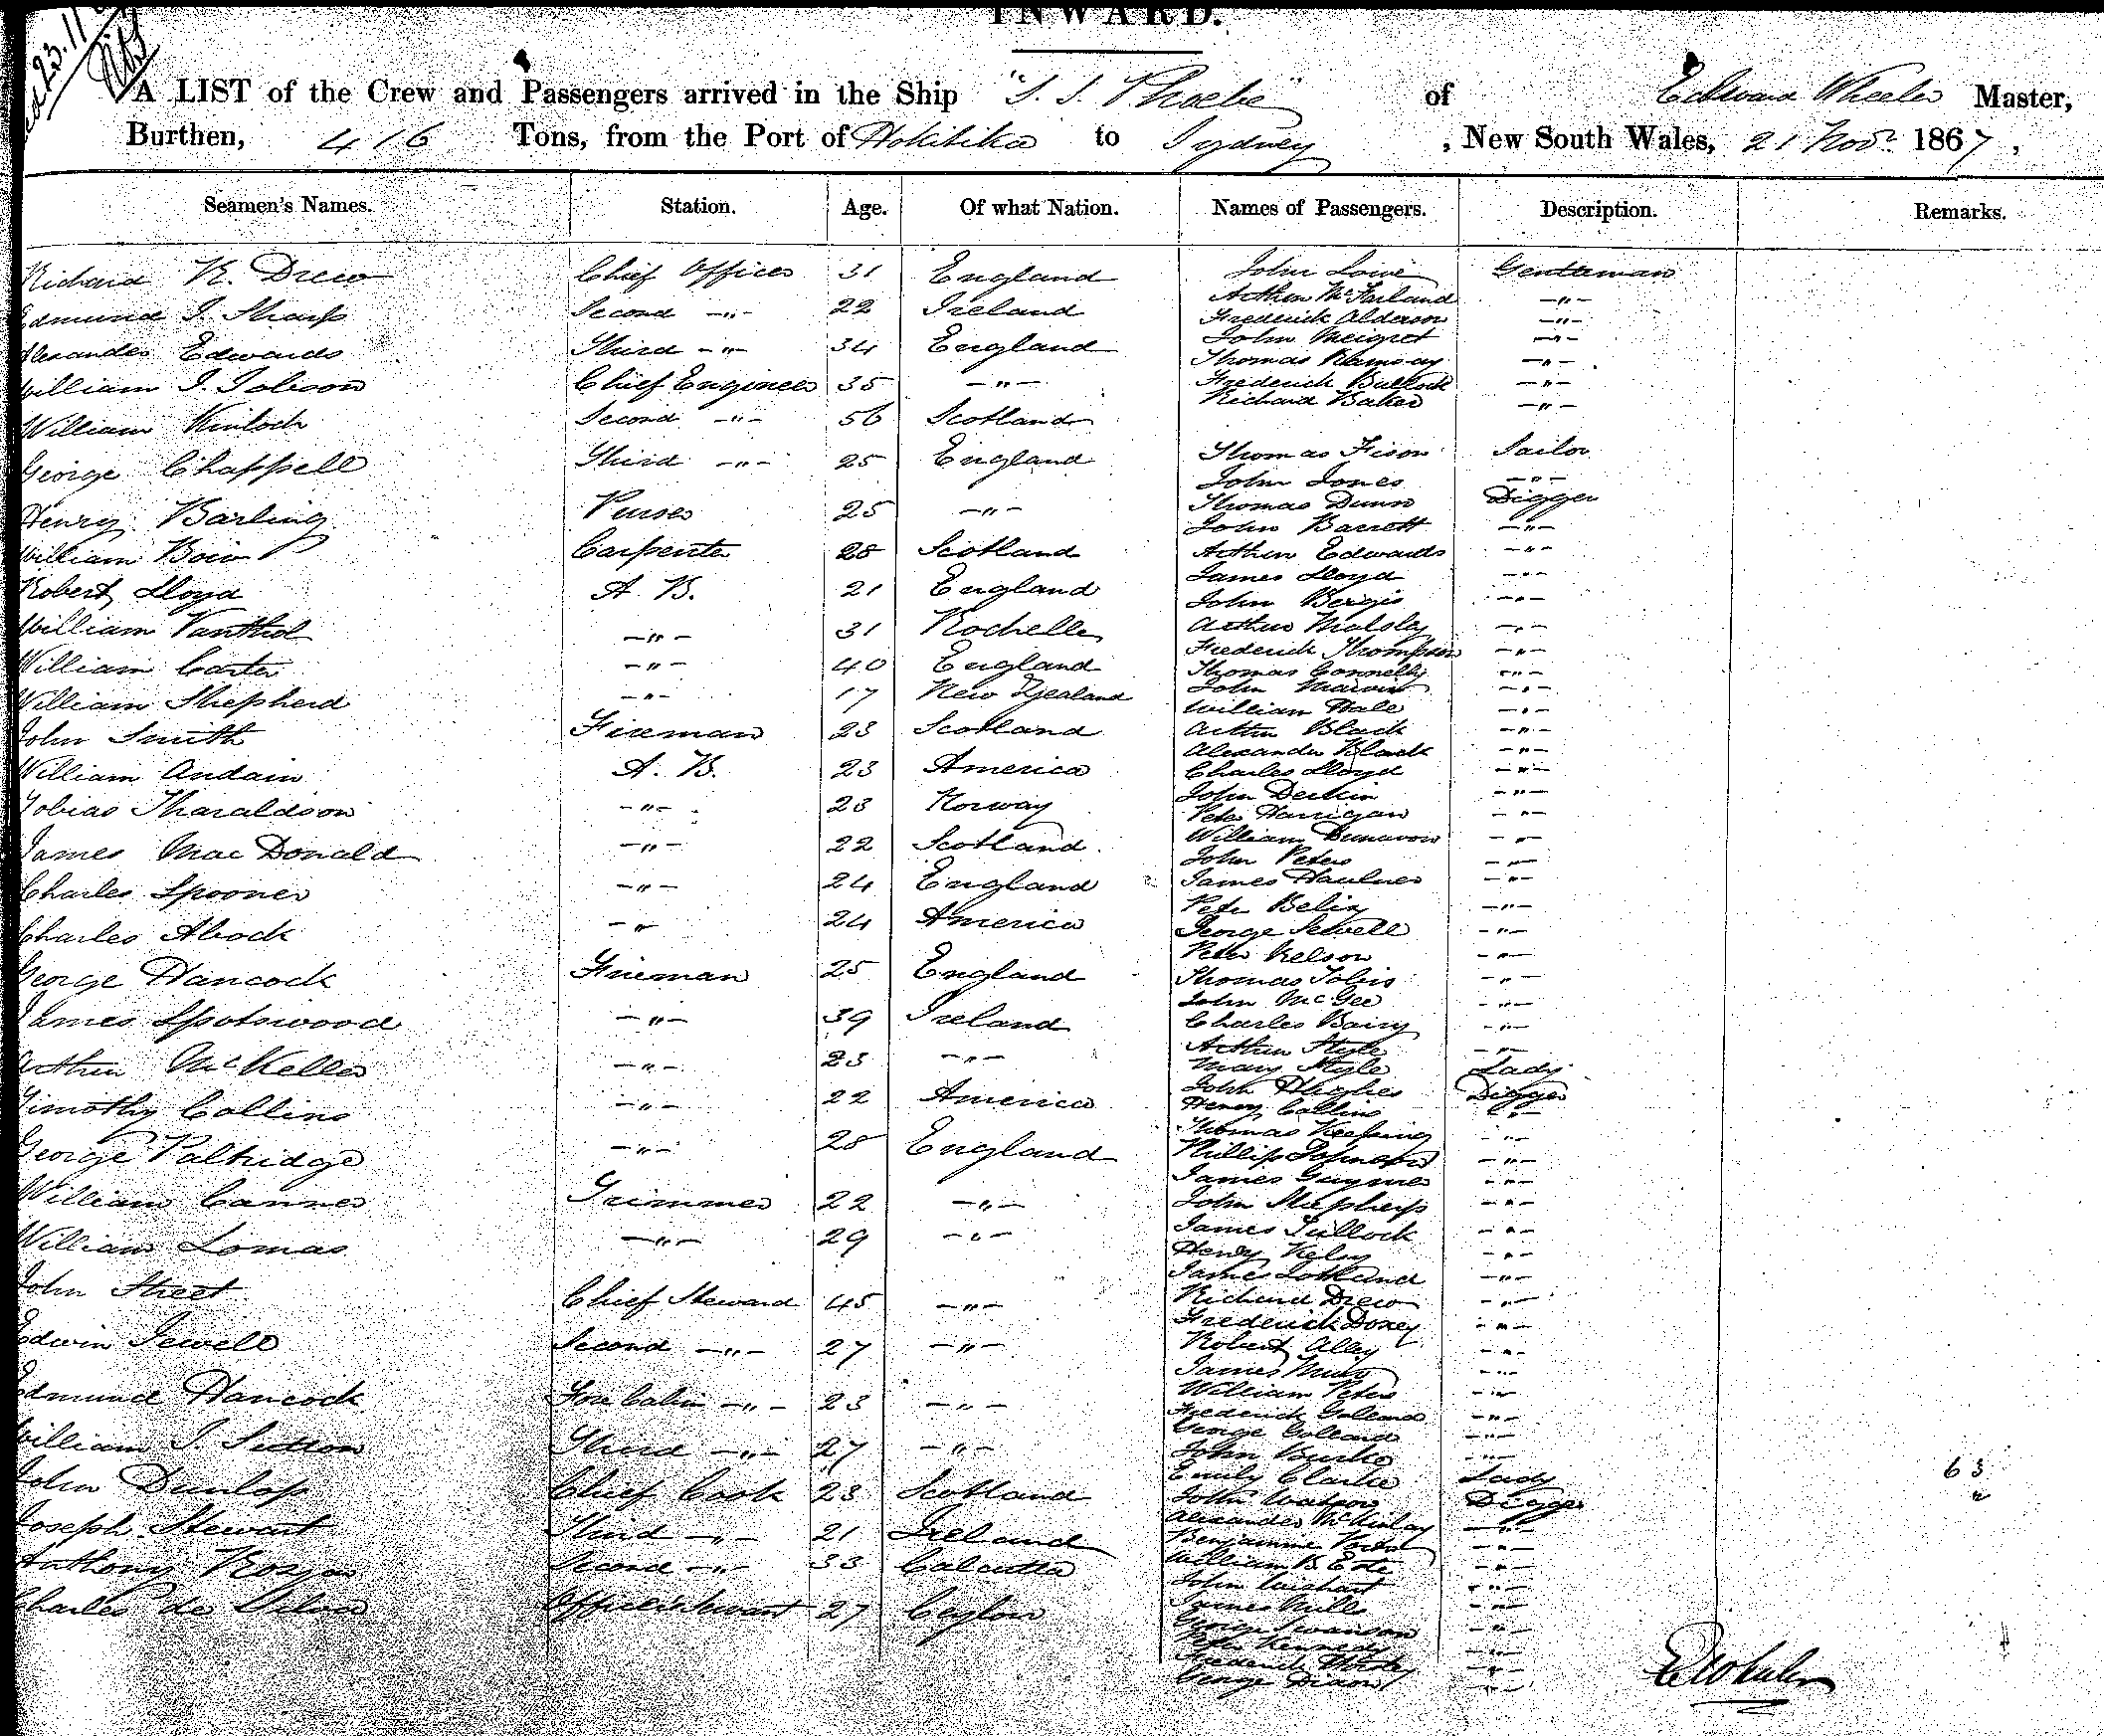 INWARD.
A LIST of the Crew and Passengers arrived in the Ship "S. S. Phoebe" of Edward Wheeler Master,
Burthen, 416 Tons, from the Port of Hokitika to Sydney, New South Wales, 21 Novr. 1867,
Seamen's Names. Station. Age. Of what Nation. Names of Passengers. Description. Remarks.
Richard R. Drew Chief Officer 31 England
Edmund J. Sharp Second -"- 22 Ireland
Alexander Edwards Third -"- 34 England
William J. Jobson Chief Engineer 35 -"-
William Kinloch Second -"- 56 Scotland
George Chappell Third -"- 25 England
Henry Barling Purser 25 -"-
William Boio Carpenter 28 Scotland
Robert Lloyd A. B. 21 England
William -"- 31 Rochelle
William Carter -"- 40 England
William Shepherd -"- 17 New Zealand
John Smith Fireman 23 Scotland
William Andain A. B. 23 America
Tobias Tharaldson -"- 23 Norway
James MacDonald -"- 22 Scotland
Charles Spooner -"- 24 England
Charles Alcock -"- 24 America
George Hancock Fireman 25 England
James Spotswood -"- 39 Ireland
Arthur McKellar -"- 23 -"-
Timothy Collins -"- 22 America
George Paltridge -"- 28 England
William Canner Trimmer 22 -"-
William Lomas -"- 29 -"-
John Street Chief Steward 45 -"-
Edwin Jewell Second -"- 27 -"-
Edmund Hancock Fore Cabin -"- 23 -"-
William J. Sutton Third -"- 27 -"-
John Dunlop Chief Cook 23 Scotland
Joseph Stewart Third -"- 21 Ireland
Anthony Second -"- 33 Calcutta
Charles de Silva 27 Ceylon
John Lowe Gentleman
Arthur McFarland -"-
Frederick Alderson -"-
John Meigret -"-
Thomas Ramsay -"-
Frederick Bullock -"-
Richard Baker -"-
Thomas Fison Sailor
John Jones -"-
Thomas Dunn Digger
John Barrett -"-
Arthur Edwards -"-
James Lloyd -"-
John Bergis -"-
Arthur Malsley -"-
Frederick Thompson -"-
Thomas Connelly -"-
John Marvin -"-
William Hale -"-
Arthur Black -"-
Alexander Black -"-
Charles Lloyd -"-
John Derkin -"-
Peter Harrigan -"-
William Dunavon -"-
John Peters -"-
James -"-
Peter Belix -"-
George Sewell -"-
Peter Nelson -"-
Thomas Tobis -"-
John McGee -"-
Charles Bairy -"-
Arthur Style -"-
Mary Style Lady
John Hughes Digger
Henry Collins -"-
Thomas Keeping -"-
Phillip Johnson -"-
James Guymer -"-
John -"-
James Tullock -"-
Henry Kelsy -"-
James -"-
Richard Drew -"-
Frederick Doxey -"-
Robert Alley -"-
James Muir -"-
William Peters -"-
Frederick Golland -"-
George Golland -"-
John Burke -"-
Emily Clarke Lady
John Watson Digger
Alexander McKinlay -"-
Benjamine -"-
William B. -"-
John -"-
James Mills -"-
George Swanson -"-
Peter Kennedy -"-
Frederick -"-
George Dixon -"-
63
E Wheeler